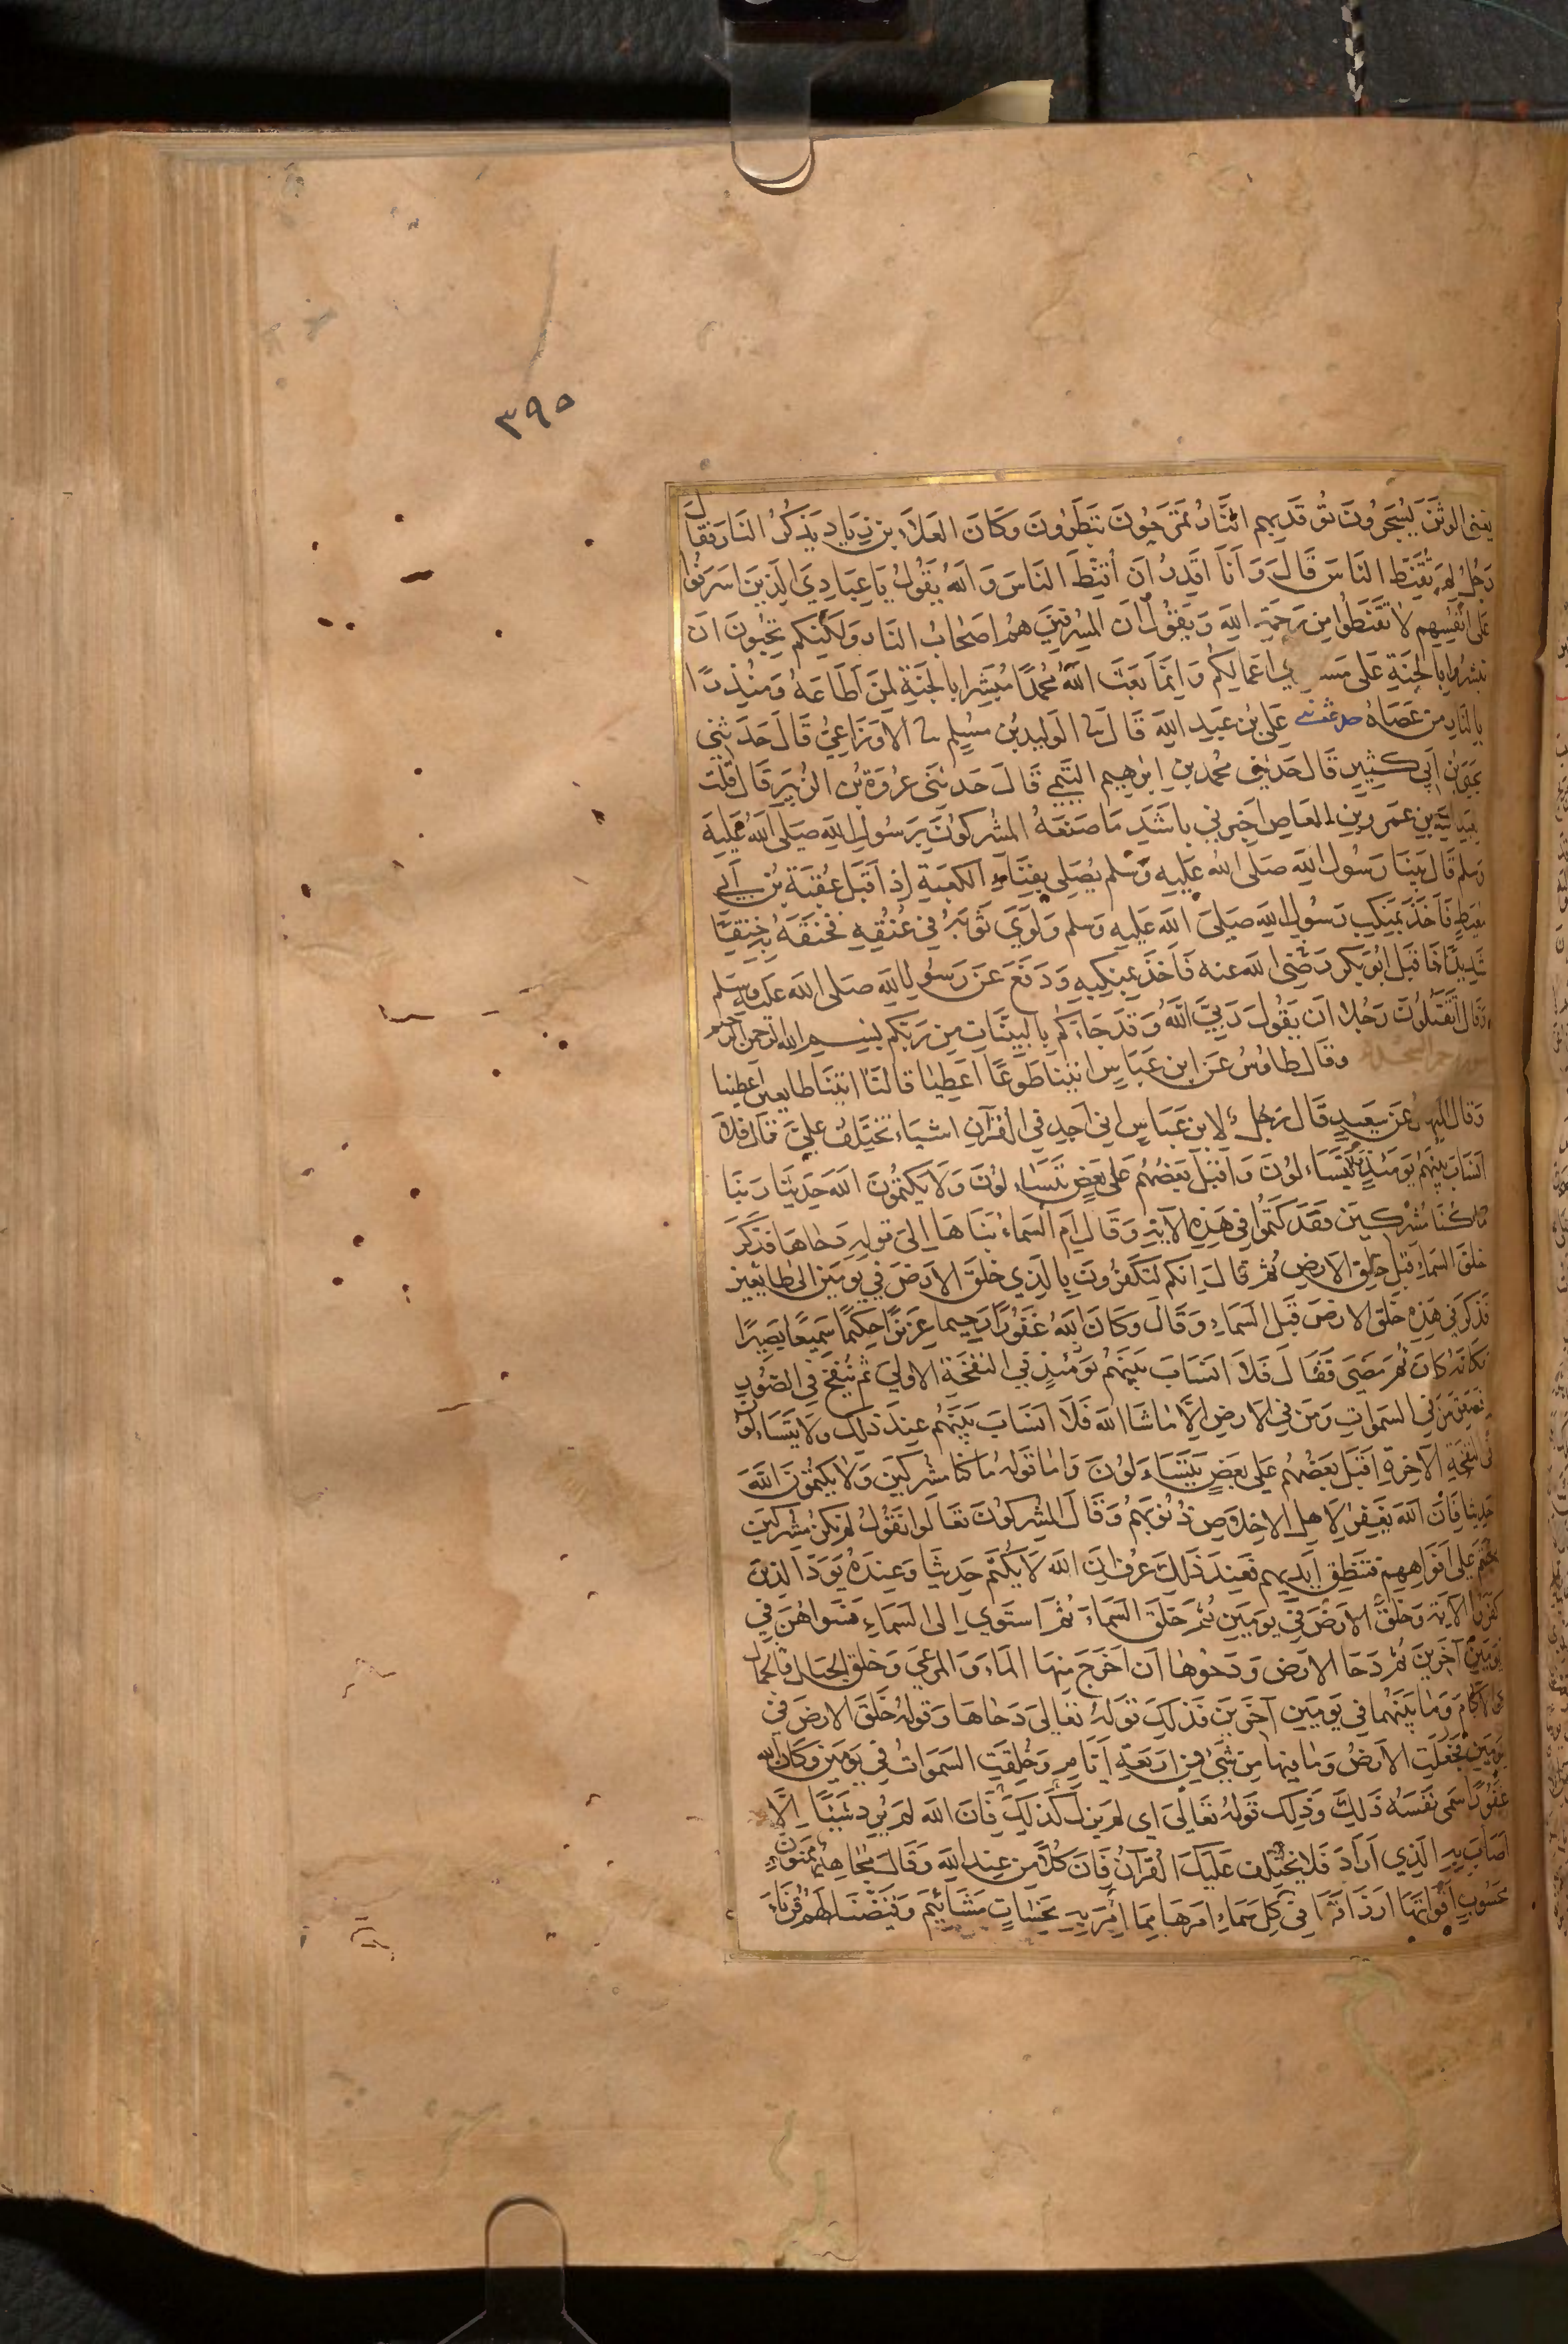 ٣٩٥
يعنى الوثن يسجرون توقد بهم النار تمرحون تبطرون وكان العلاء بن زياد يذكر النار فقال
رجل لم تقنط الناس قال وانا اقدر ان اقنط الناس والله يقول يا عبادي الذين اسرفوا
على انفسهم لا تقنطوا من رحمة الله ويقول ان المسرفين هم اصحاب النار ولكنكم تحبون ان
تبشروا بالجنة على اعمالكم وانما بعث الله محمدا مبشرا بالجنة لمن اطاعه ومنذرا
بالنار من عصاه علي بن عبد الله قال ثنا الوليد بن مسلم ثنا الاوزاعي قال حدثني
يحيى بن ابي كثير قال حدثني محمد بن ابرهيم التيمي قال حدثنى عروة بن الزبير قال قلت
لعبد الله بن عمرو بن العاص اخبرني باشد ما صنعه المشركون برسول الله صلى الله عليه
وسلم قال بينا رسول الله صلى الله عليه وسلم يصلى بفناء الكعبة إذ اقبل عقبة بن أبي
معيط فاخذ بمنكب رسول الله صلى الله عليه وسلم ولوى ثوبه في عنقه فخنقه خنقا
شديدا فاقبل ابو بكر رضى الله عنه فاخذ بمنكبه ودفع عن رسول الله صلى الله عليه وسلم
وقال اتقتلون رجلا ان يقول ربي الله وقد جاءكم بالبينات من ربكم بسم الله الرحمن الرحيم
سورة حم السجدة وقال طاوس عن ابن عباس ائتيا طوعا اعطيا قالتا اتينا طايعين اعطينا
وقال المنهال عن سعيد قال رجل لابن عباس اني اجد في القرآن اشياء تختلف علي قال فلا
انساب بينهم يومئذ ولا يتساءلون واقبل بعضهم على بعض يتساءلون ولا يكتمون الله حديثا ربنا
ما كنا مشركين فقد كتموا في هذه الآية وقال ام السماء بناها إلى قوله دحاها فذكر
خلق السماء قبل خلق الارض ثم قال انكم لتكفرون بالذي خلق الارض في يومين الى طايعين
فذكر في هذه خلق الارض قبل السماء وقال وكان الله غفورا رحيما عزيزا حكيما سميعا بصيرا
فكانه كان ثم مضى فقال فلا انساب بينهم يومئذ في النفخة الاولى ثم ينفخ في الصور
فصعق من في السموات ومن في الارض إلا ما شاء الله فلا انساب بينهم عند ذلك ولا يتساءلون
في النفخة الآخرة اقبل بعضهم على بعض يتساءلون واما قوله ما كنا مشركين ولا يكتمون الله
حديثا فان الله يغفر لاهل الاخلاص ذنوبهم وقال المشركون تعالوا نقول لم نكن مشركين
فختم على افواههم فتنطق ايديهم فعند ذلك عرف ان الله لا يكتم حديثا وعنده يود الذين
كفروا الآية وخلق الارض في يومين ثم خلق السماء ثم استوى إلى السماء فسواهن في
يومين آخرين ثم دحا الارض ودحوها ان اخرج منها الماء والمرعى وخلق الجبال والجمال
والآكام وما بينهما في يومين آخرين فذلك قوله تعالى دحاها وقوله خلق الارض في
يومين فجعلت الارض وما فيها من شيء في اربعة ايام وخلقت السموات في يومين وكان الله
غفورا سمى نفسه ذلك وذلك قوله تعالى اي لم يزل كذلك فان الله لم يرد شيئا إلا
اصاب به الذي اراد فلا يختلف عليك القرآن فان كلا من عند الله وقال مجاهد ممنون
محسوب اقواتها ارزاقها في كل سماء امرها مما امر به نحسات مشائيم وقيضنا لهم قرناء